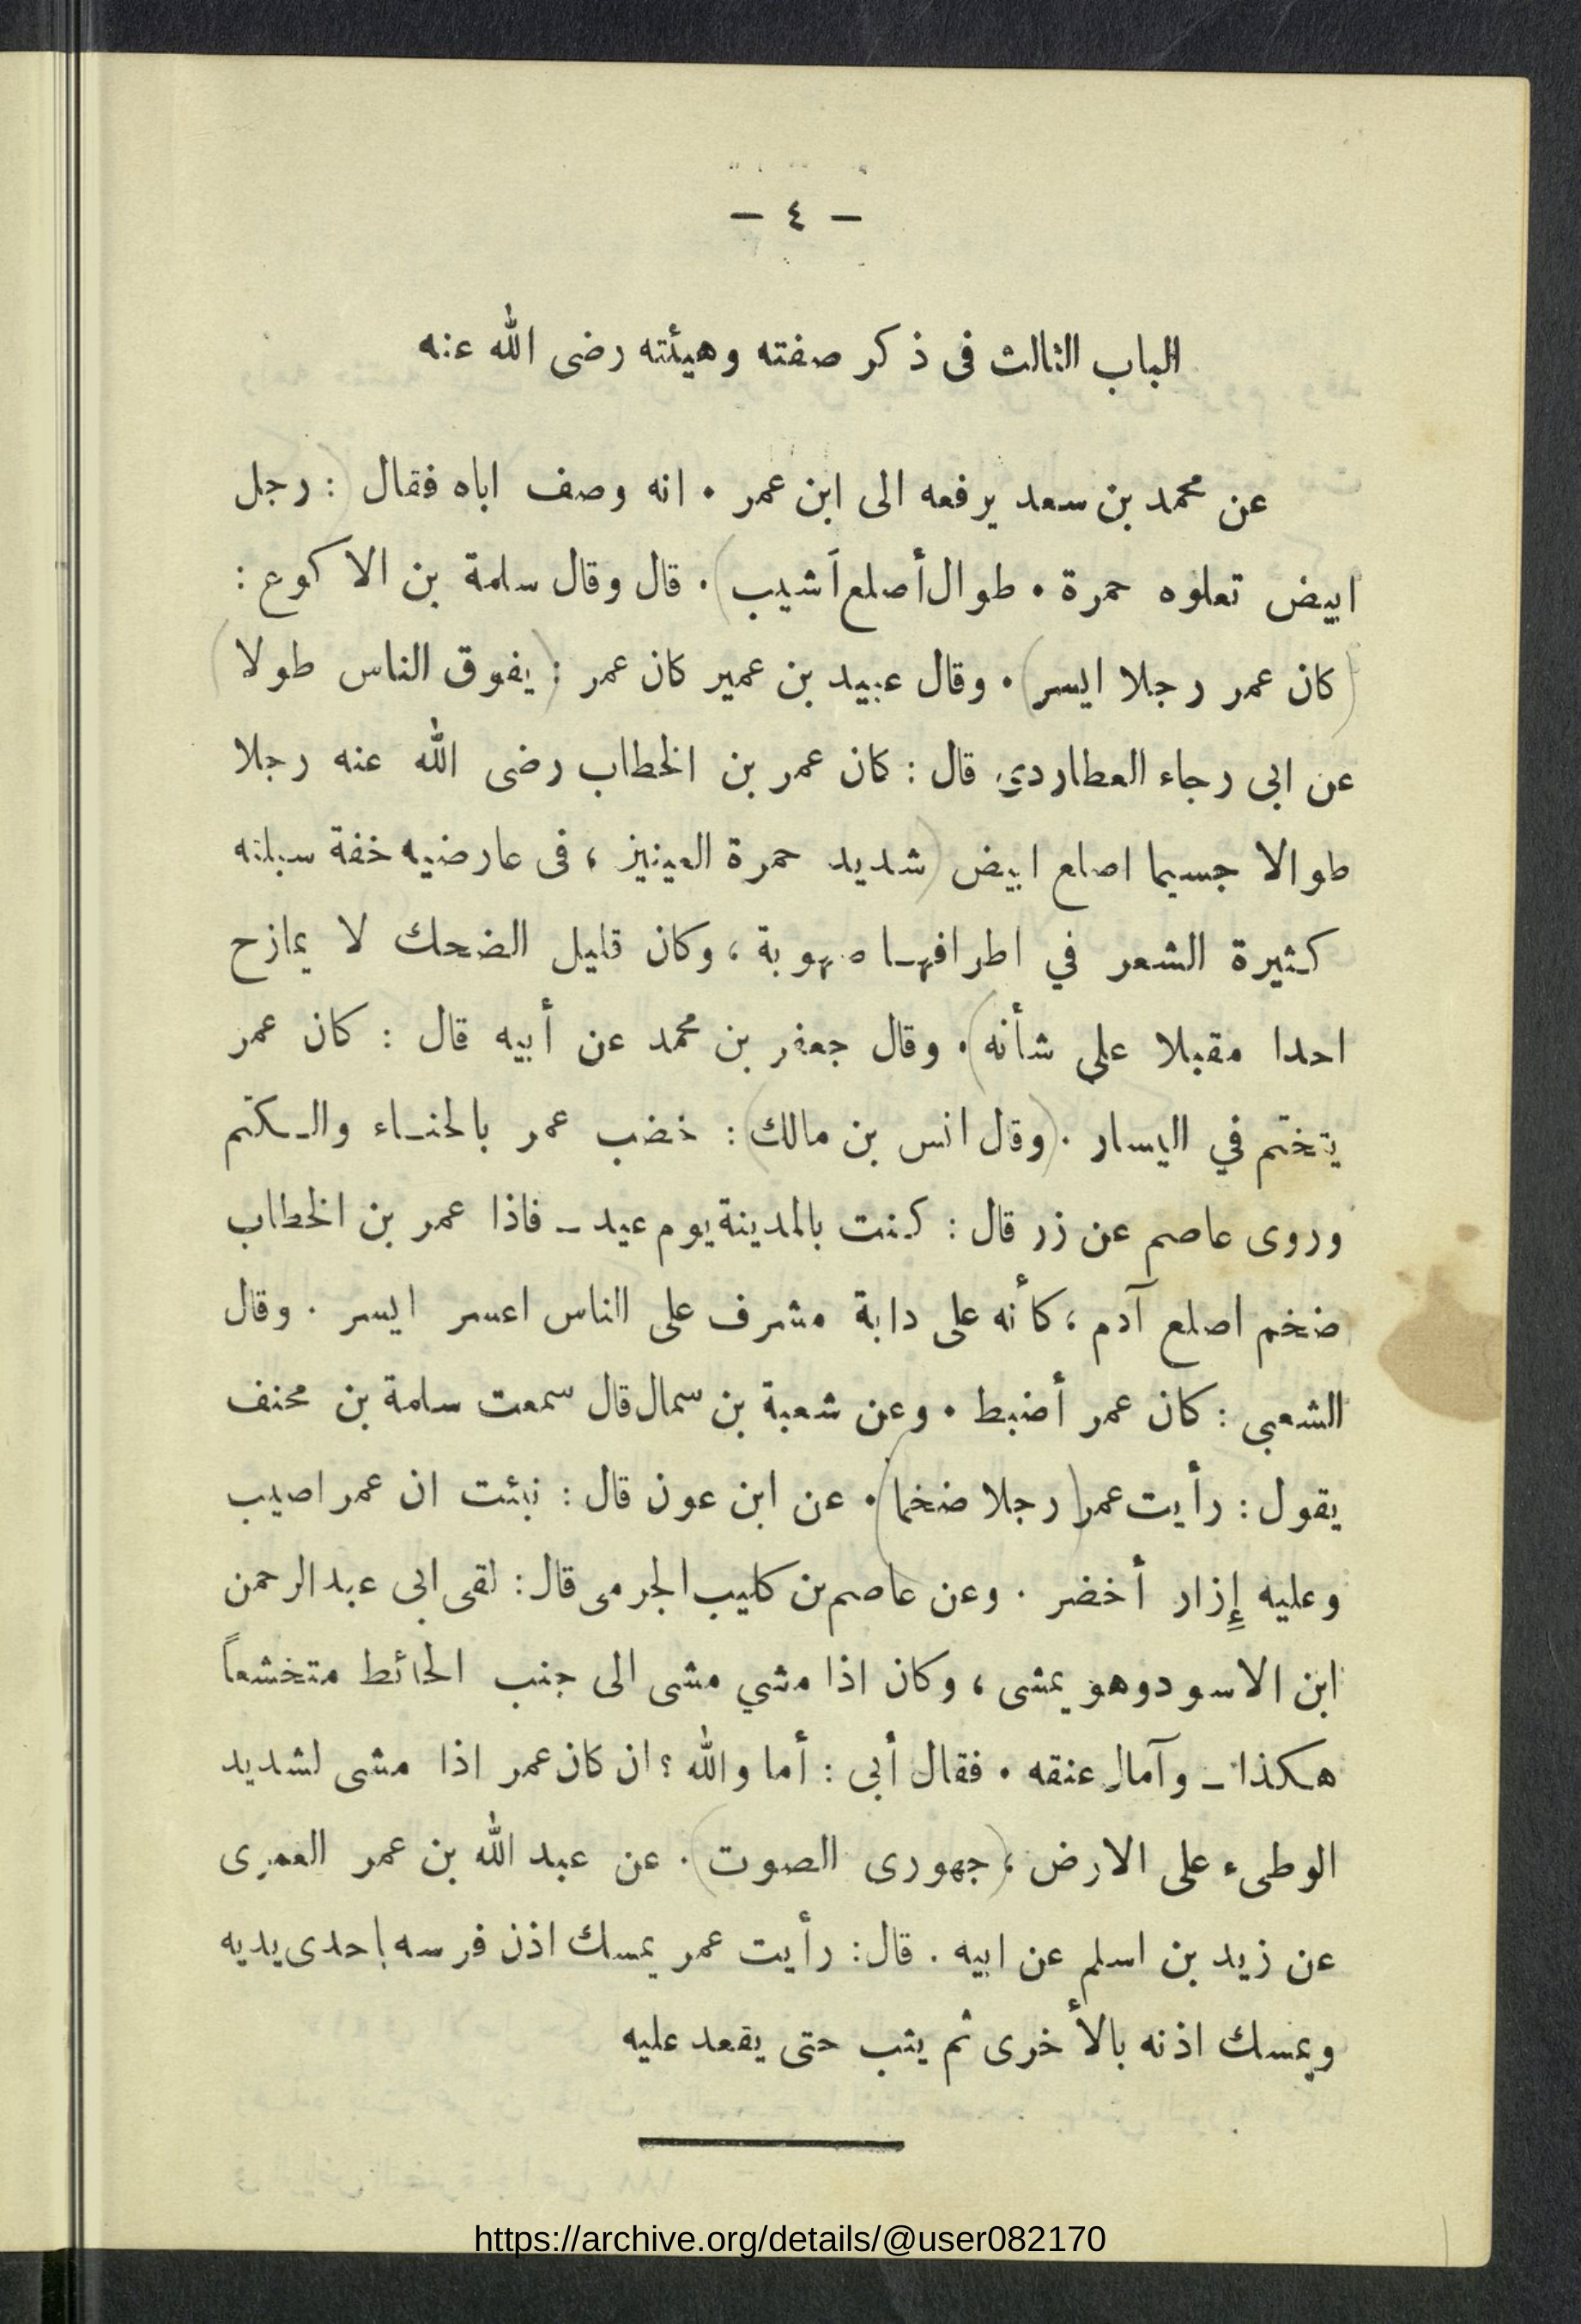 — ٤ —
الباب الثالث فى ذكر صفته وهيئته رضى الله عنه
عن محمد بن سعد يرفعه الى ابن عمر . انه وصف اباه فقال (: رجل
ابيض تعلوه حمرة . طوال أصلع أشيب ). قال وقال سلمة بن الاكوع :
(كان عمر رجلا ايسر) . وقال عبيد بن عمير كان عمر : (يفوق الناس طولا)
عن ابى رجاء العطاردي قال : كان عمر بن الخطاب رضى الله عنه رجلا
طوالا جسيما اصلع ابيض (شديد حمرة العينين ، فى عارضيه خفة سبلته
كثيرة الشعر في اطرافهـا صهوبة ، وكان قليل الضحك لا يمازح
احدا مقبلا على شأنه ). وقال جعفر بن محمد عن أبيه قال : كان عمر
يتختم في اليسار . (وقال انس بن مالك) : خضب عمر بالحنـاء والـكتم
وروى عاصم عن زر قال : كنت بالمدينة يوم عيد ــ فاذا عمر بن الخطاب
ضخم اصلع آدم ؛ كأنه على دابة مشرف على الناس اعسر ايسر . وقال
الشعبى : كان عمر أضبط . وعن شعبة بن سمال قال سمعت سلمة بن محنف
يقول : رأيت عمر (رجلا ضخما) . عن ابن عون قال : نبئت ان عمر اصيب
وعليه إِزار أخضر . وعن عاصم بن كليب الجرمى قال : لقى ابى عبد الرحمن
ابن الاسود وهو يمشى ، وكان اذا مشي مشى الى جنب الحائط متخشعاً
هـكذا ــ وآمال عنقه . فقال أبى : أما والله ؟ ان كان عمر اذا مشى لشديد
الوطىء على الارض ، (جهورى الصوت) . عن عبد الله بن عمر العمرى
عن زيد بن اسلم عن ابيه . قال : رأيت عمر يمسك اذن فرسه باحدى يديه
ويمسك اذنه بالأخرى ثم يثب حتى يقعد عليه
https://archive.org/details/@user082170